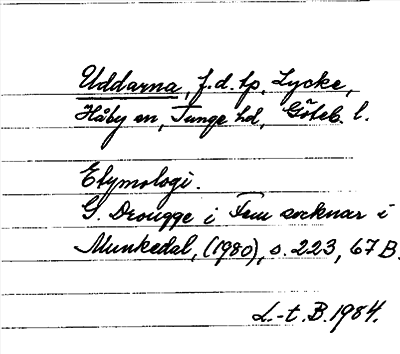 Uddarna, f.d. tp, Lycke,
Håby sn, Tunge hd, Göteb. l.
Etymologi.
G. Drougge i Fem socknar i
Munkedal, (1980), s. 223, 67 B.
L.-t. B. 1984.